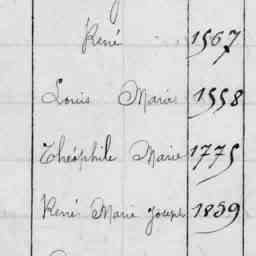 René 1567
Louis Marie 1558
Théophile Marie 1775
René Marie Joseph 1859